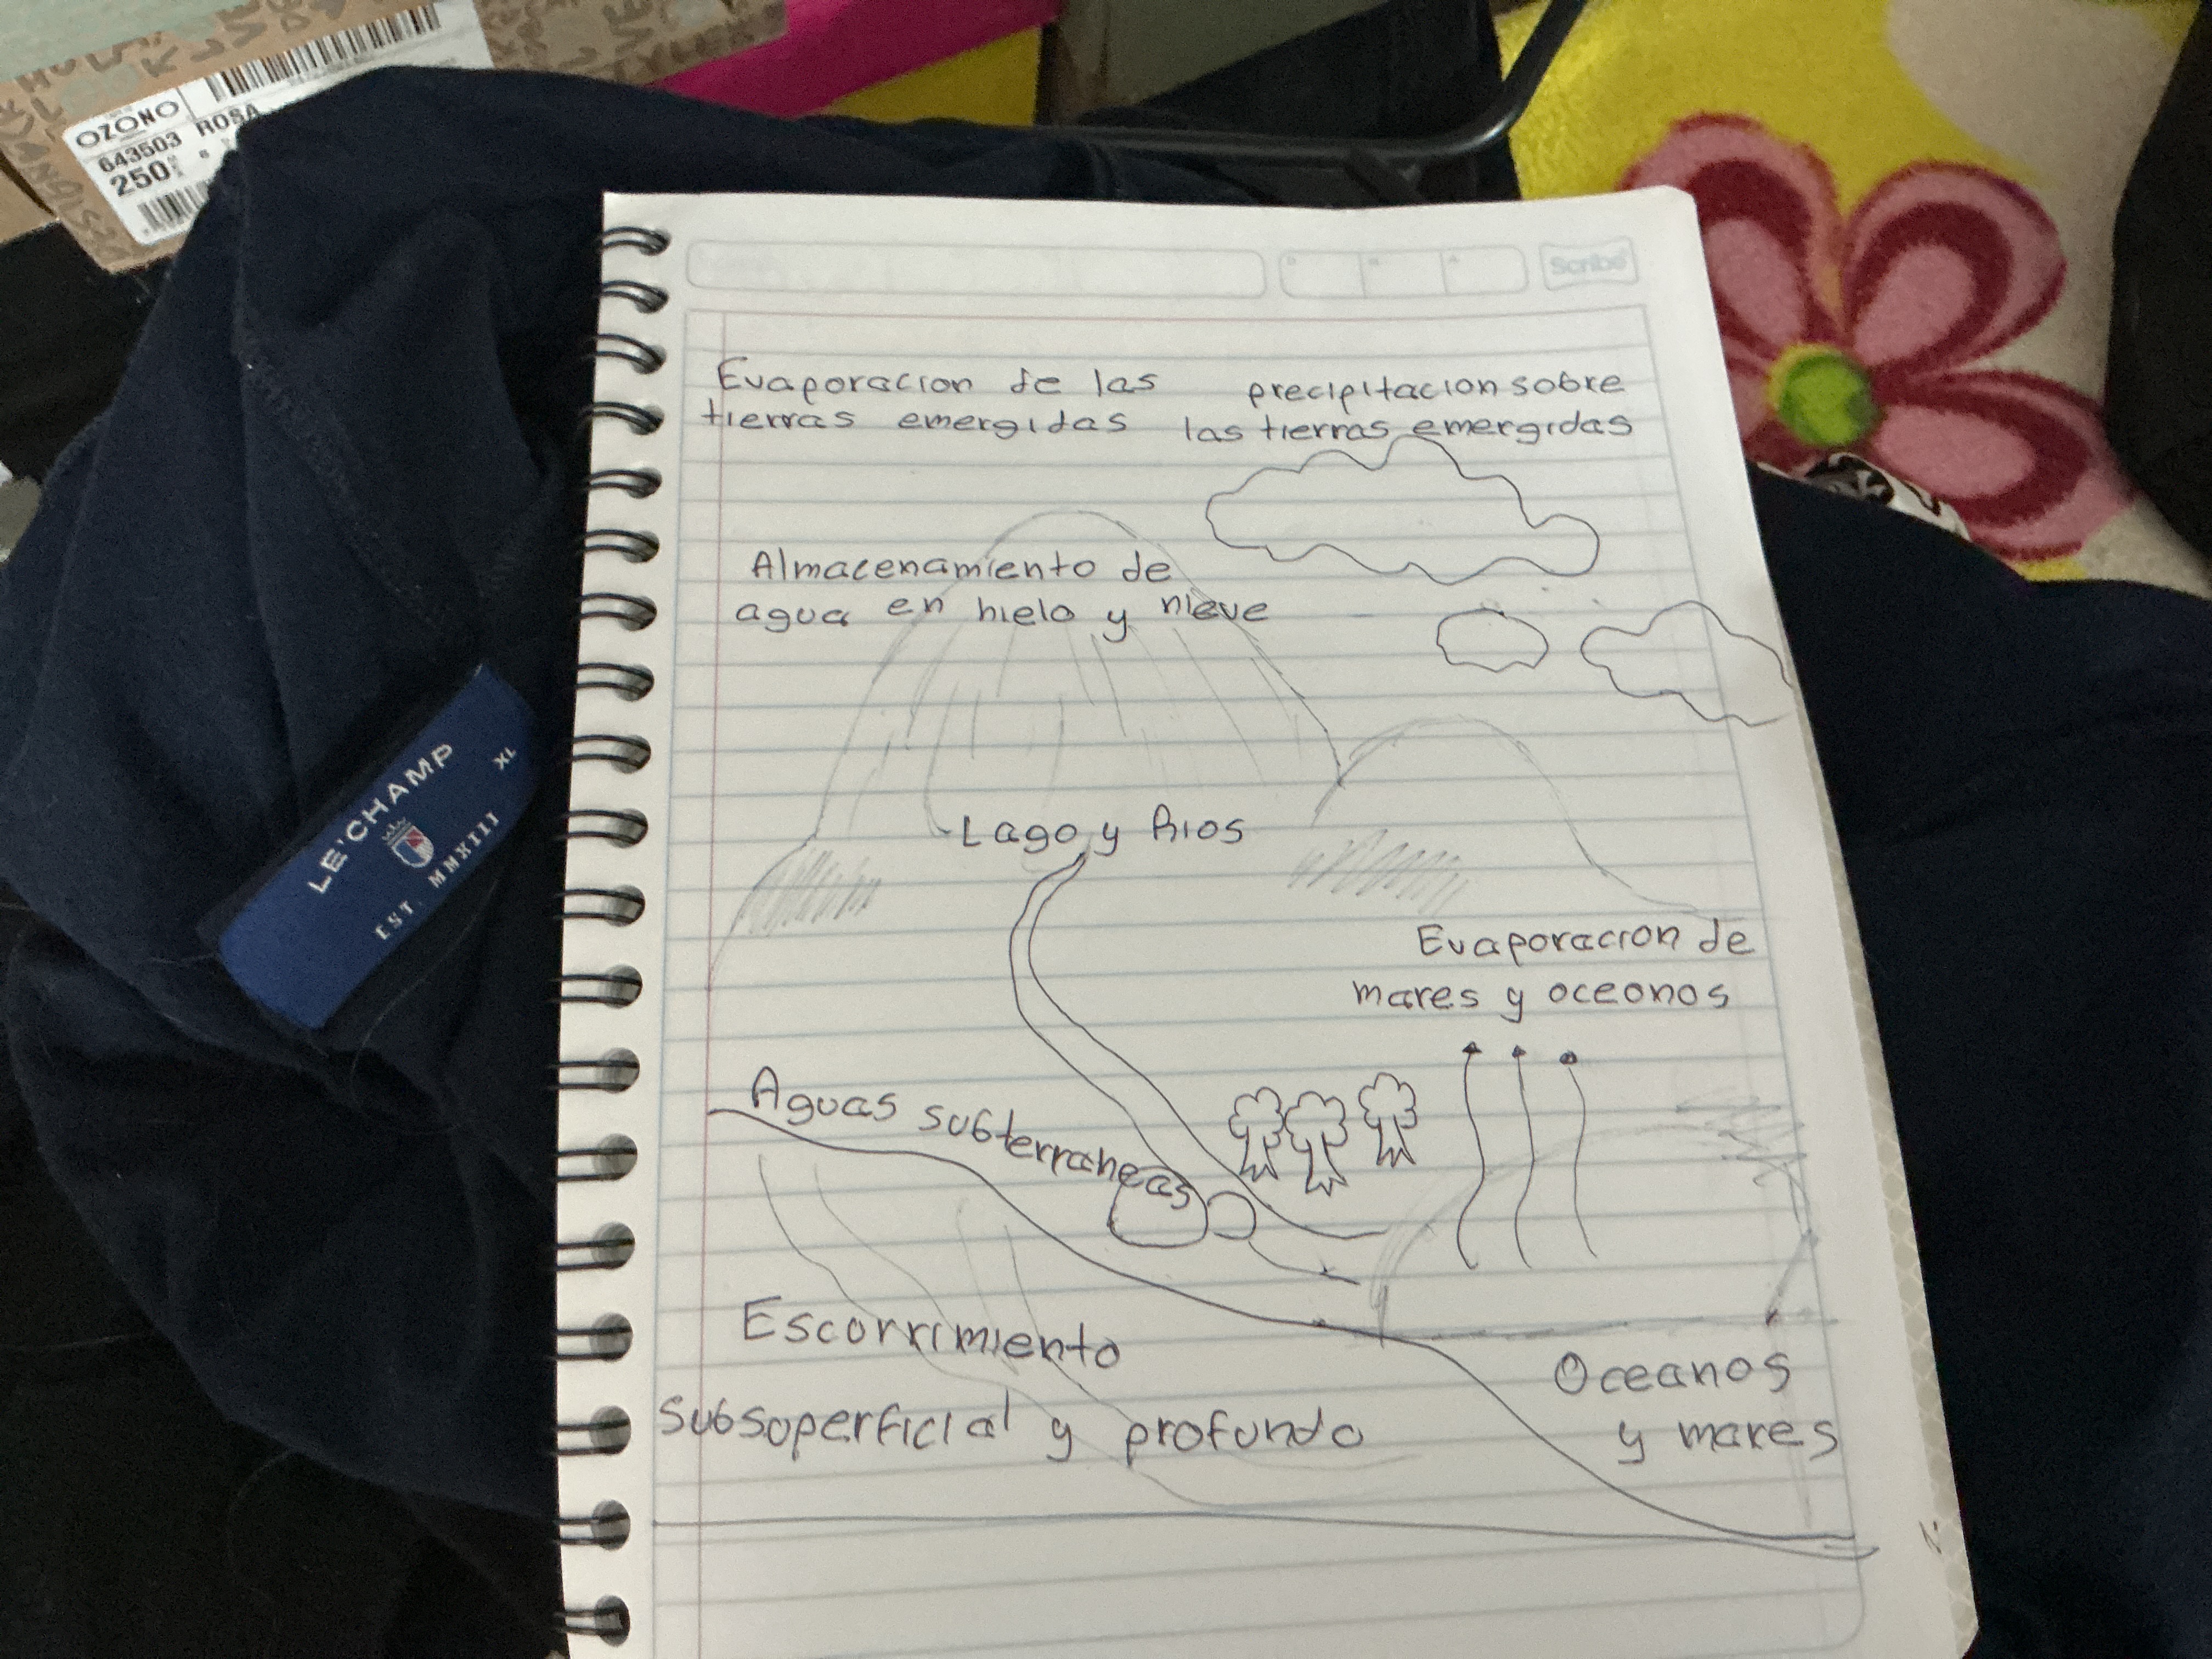 OZONO
643503 ROSA
250
Scribe
Evaporacion de las
tierras emergidas
precipitacion sobre
las tierras emergidas
Almacenamiento de
agua en hielo y nieve
LE'CHAMP
XL
EST. MMXIII
Lago y Rios
Evaporacion de
mares y oceonos
Aguas subterraneas
Escorrimiento
subsoperficial y profundo
Oceanos
y mares